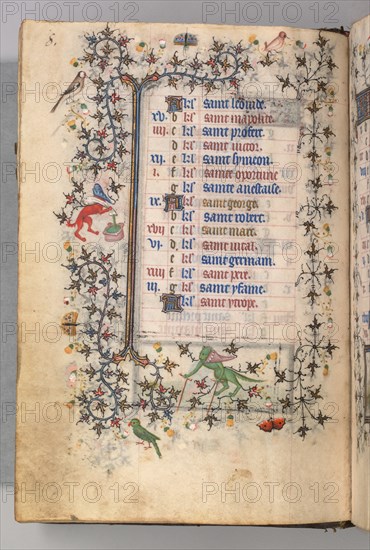 8.
A kl' saint leonide.
xv. b kl' saint mapolite.
iiii. c kl' saint profete.
d kl' saint victor.
xii. e kl' saint symeon.
i. f kl' sainte oportune
g kl' sainte anestaise.
ix. A kl' saint george.
b kl' saint robert.
xvii. c kl' saint marc.
vi. d kl' saint vital.
e kl' saint germain.
xiiii f kl' saint pere.
iii. g kl' saint
A kl' saint
PHOTO12